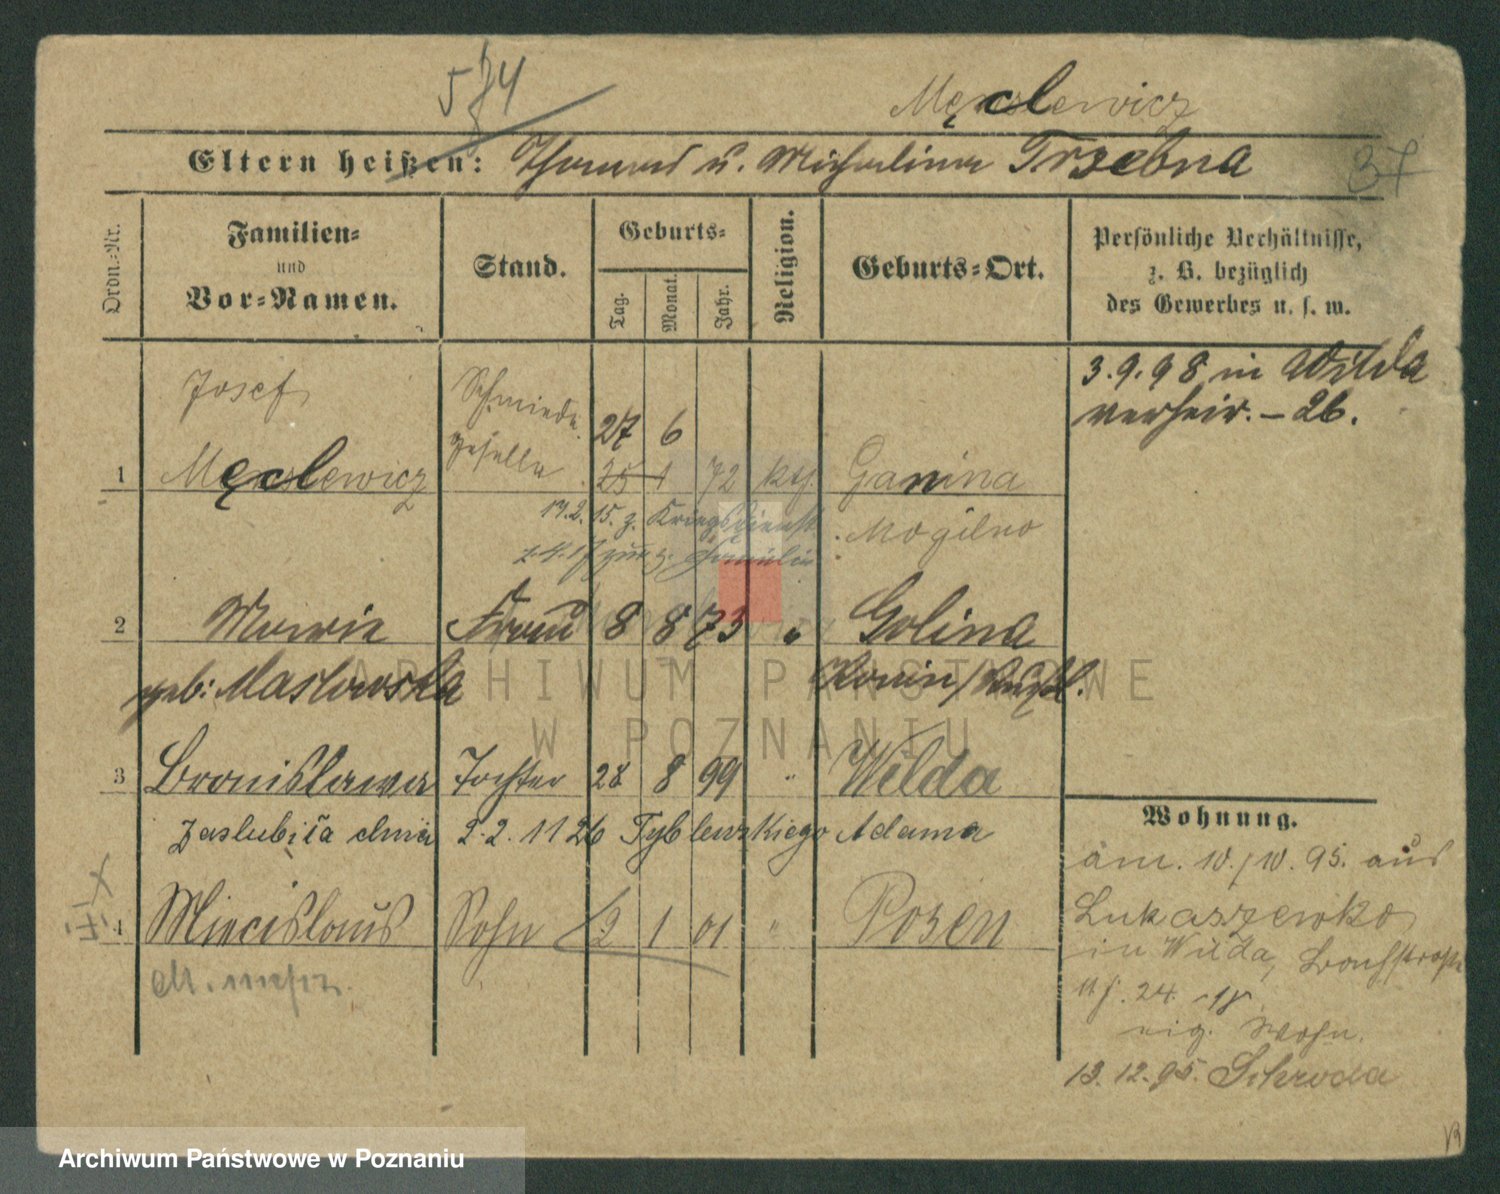 574
Męclewicz
Eltern heißen: Thomas u. Michalina Trzebna
37
Ordn.-Nr.
Familien-
und
Vor-Namen.
Stand.
Geburts-
Tag.
Monat.
Jahr.
Religion.
Geburts-Ort.
Persönliche Verhältnisse,
z. B. bezüglich
des Gewerbes u. s. w.
3.9.98 in Wilda
verheir. – 26.
Josef Schmiede-
27 6
geselle
1 Męclewicz 25 1 72 kth. Ganina
17.2.15. z. Kriegsdienst. Mogilno
z. Familie
2 Marie Frau 8 8 73 " Golina
geb: Maslowska Konin/Rußl.
3 Bronislawa Tochter 28 8 99 " Wilda
Zaslubiła dnia 2.2.1126 Tyblewskiego Adama
4 Miecislaus Sohn 2 1 01 " Posen
Wohnung.
am. 10./10. 95. aus
Lukaszewko
in Wilda,
24. 18
eig. Wohn.
13.12.95. Schroda
ARCHIWUM PAŃSTWOWE
W POZNANIU
Archiwum Państwowe w Poznaniu